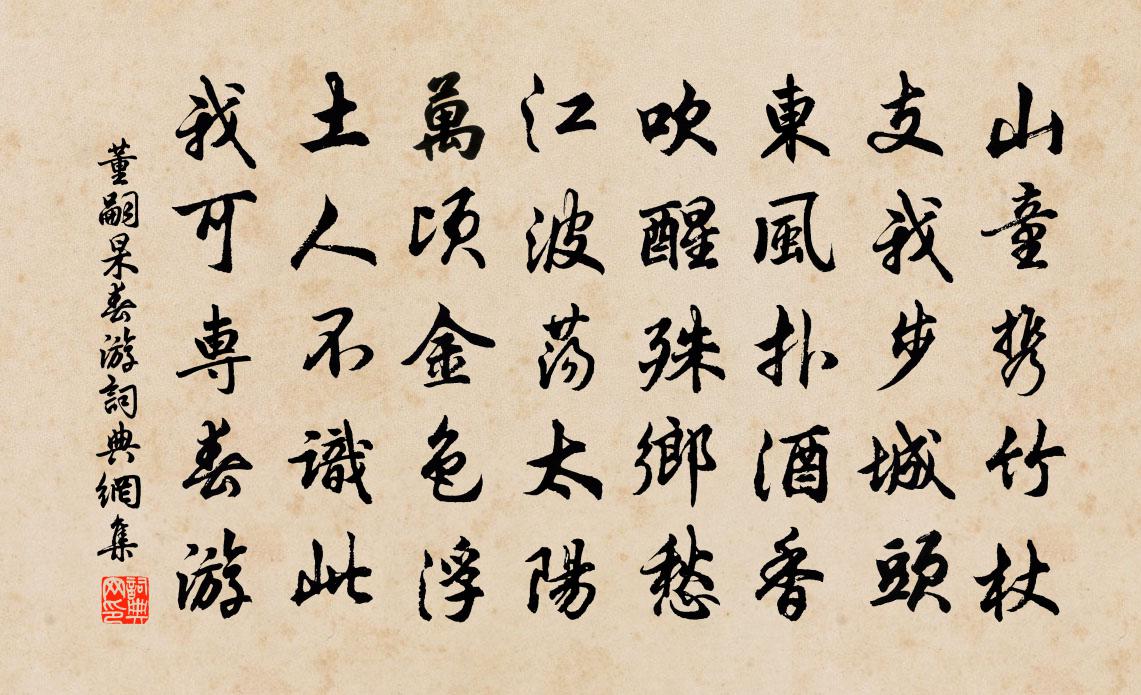 山童携竹杖
支我步城頭
東風扑酒香
吹醒殊鄉愁
江波蕩太陽
萬頃金色浮
土人不識此
我可專春游
董嗣杲春游詞典網集
詞典网印